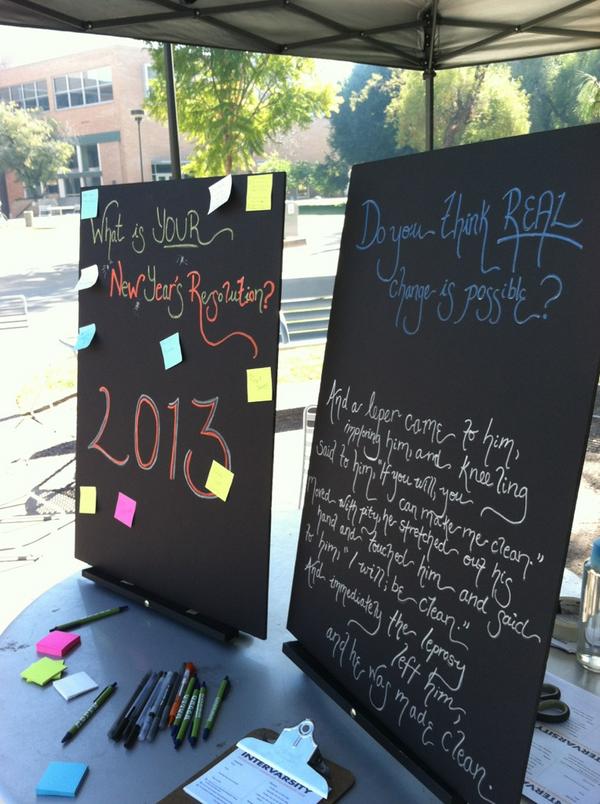 What is YOUR
New Year's Resolution?
2013
Do you think REAL
change is possible?
And a leper came to him,
imploring him, and kneeling
said to him, "If you will, you
can make me clean."
Moved with pity, he stretched out his
hand and touched him and said
to him, "I will; be clean."
And immediately the leprosy
left him,
and he was made clean.
INTERVARSITY
INTERVARSITY